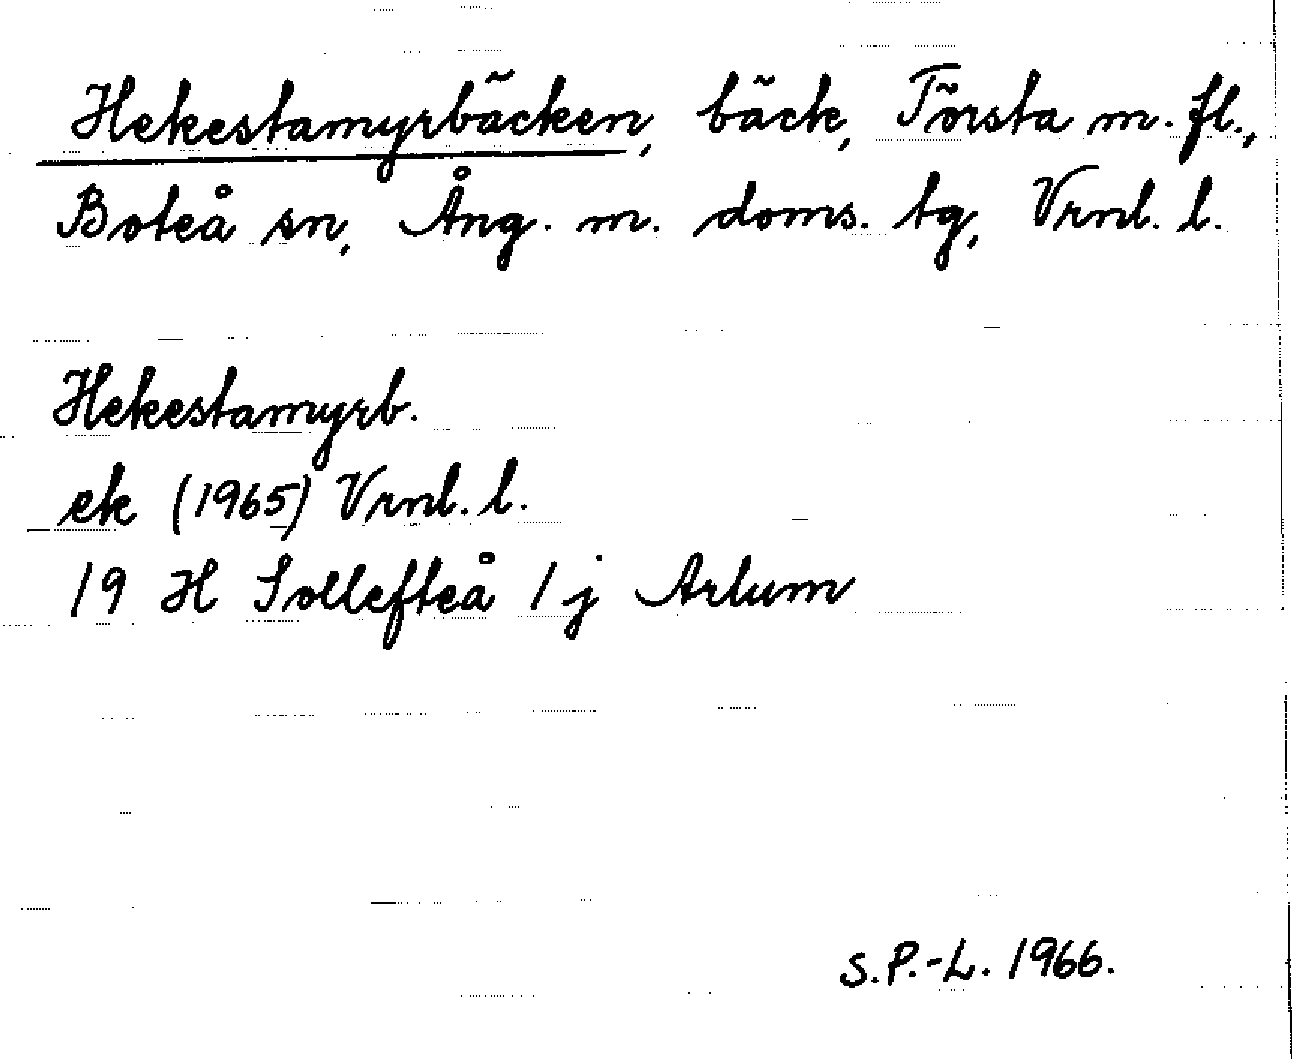 Hekestamyrbäcken, bäck, Törsta m. fl.,
Boteå sn, Ång. m. doms. tg, Vrnl. l.
Hekestamyrb.
ek (1965) Vrnl. l.
19 H Sollefteå 1 j Arlum
S.P.-L. 1966.